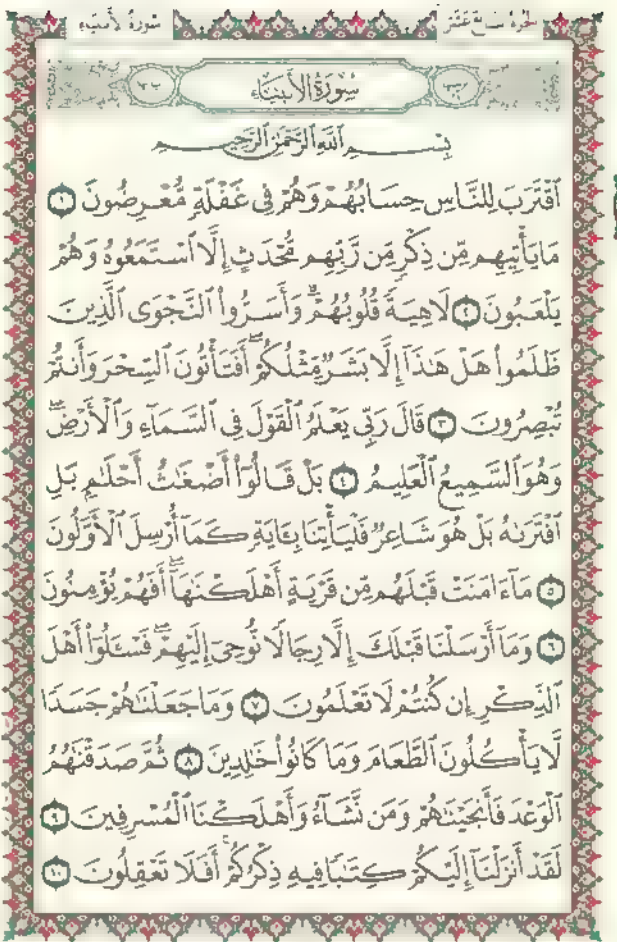 سُورَةُ الأَنبِيَاءِ الجُزْءُ السَّابِعَ عَشَرَ
سُورَةُ الأَنبِيَاءِ
بِسْمِ ٱللَّهِ ٱلرَّحْمَٰنِ ٱلرَّحِيمِ
ٱقْتَرَبَ لِلنَّاسِ حِسَابُهُمْ وَهُمْ فِى غَفْلَةٍ مُّعْرِضُونَ ١
مَا يَأْتِيهِم مِّن ذِكْرٍ مِّن رَّبِّهِم مُّحْدَثٍ إِلَّا ٱسْتَمَعُوهُ وَهُمْ
يَلْعَبُونَ ٢ لَاهِيَةً قُلُوبُهُمْ ۗ وَأَسَرُّوا۟ ٱلنَّجْوَى ٱلَّذِينَ
ظَلَمُوا۟ هَلْ هَٰذَآ إِلَّا بَشَرٌ مِّثْلُكُمْ ۖ أَفَتَأْتُونَ ٱلسِّحْرَ وَأَنتُمْ
تُبْصِرُونَ ٣ قَالَ رَبِّى يَعْلَمُ ٱلْقَوْلَ فِى ٱلسَّمَآءِ وَٱلْأَرْضِ ۖ
وَهُوَ ٱلسَّمِيعُ ٱلْعَلِيمُ ٤ بَلْ قَالُوٓا۟ أَضْغَٰثُ أَحْلَٰمٍۭ بَلِ
ٱفْتَرَىٰهُ بَلْ هُوَ شَاعِرٌ فَلْيَأْتِنَا بِـَٔايَةٍ كَمَآ أُرْسِلَ ٱلْأَوَّلُونَ
٥ مَآ ءَامَنَتْ قَبْلَهُم مِّن قَرْيَةٍ أَهْلَكْنَٰهَآ ۖ أَفَهُمْ يُؤْمِنُونَ
٦ وَمَآ أَرْسَلْنَا قَبْلَكَ إِلَّا رِجَالًا نُّوحِىٓ إِلَيْهِمْ ۖ فَسْـَٔلُوٓا۟ أَهْلَ
ٱلذِّكْرِ إِن كُنتُمْ لَا تَعْلَمُونَ ٧ وَمَا جَعَلْنَٰهُمْ جَسَدًا
لَّا يَأْكُلُونَ ٱلطَّعَامَ وَمَا كَانُوا۟ خَٰلِدِينَ ٨ ثُمَّ صَدَقْنَٰهُمُ
ٱلْوَعْدَ فَأَنجَيْنَٰهُمْ وَمَن نَّشَآءُ وَأَهْلَكْنَا ٱلْمُسْرِفِينَ ٩
لَقَدْ أَنزَلْنَآ إِلَيْكُمْ كِتَٰبًا فِيهِ ذِكْرُكُمْ ۖ أَفَلَا تَعْقِلُونَ ١٠